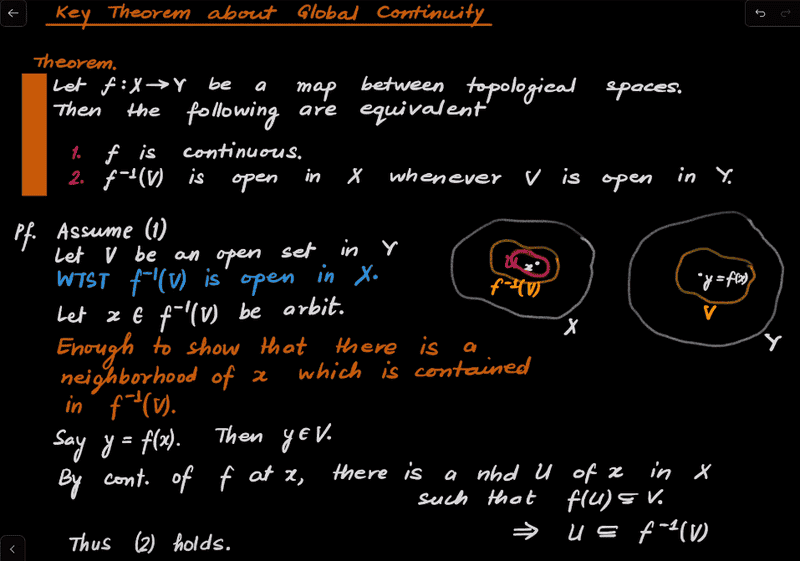 Key Theorem about Global Continuity
Theorem.
Let f : X → Y be a map between topological spaces.
Then the following are equivalent
1. f is continuous.
2. f⁻¹(V) is open in X whenever V is open in Y.
Pf. Assume (1)
Let V be an open set in Y
WTST f⁻¹(V) is open in X.
Let x ∈ f⁻¹(V) be arbit.
Enough to show that there is a
neighborhood of x which is contained
in f⁻¹(V).
Say y = f(x). Then y ∈ V.
By cont. of f at x, there is a nhd U of x in X
such that f(U) ⊆ V.
⇒ U ⊆ f⁻¹(V)
Thus (2) holds.
U
x
f⁻¹(V)
X
y = f(x)
V
Y